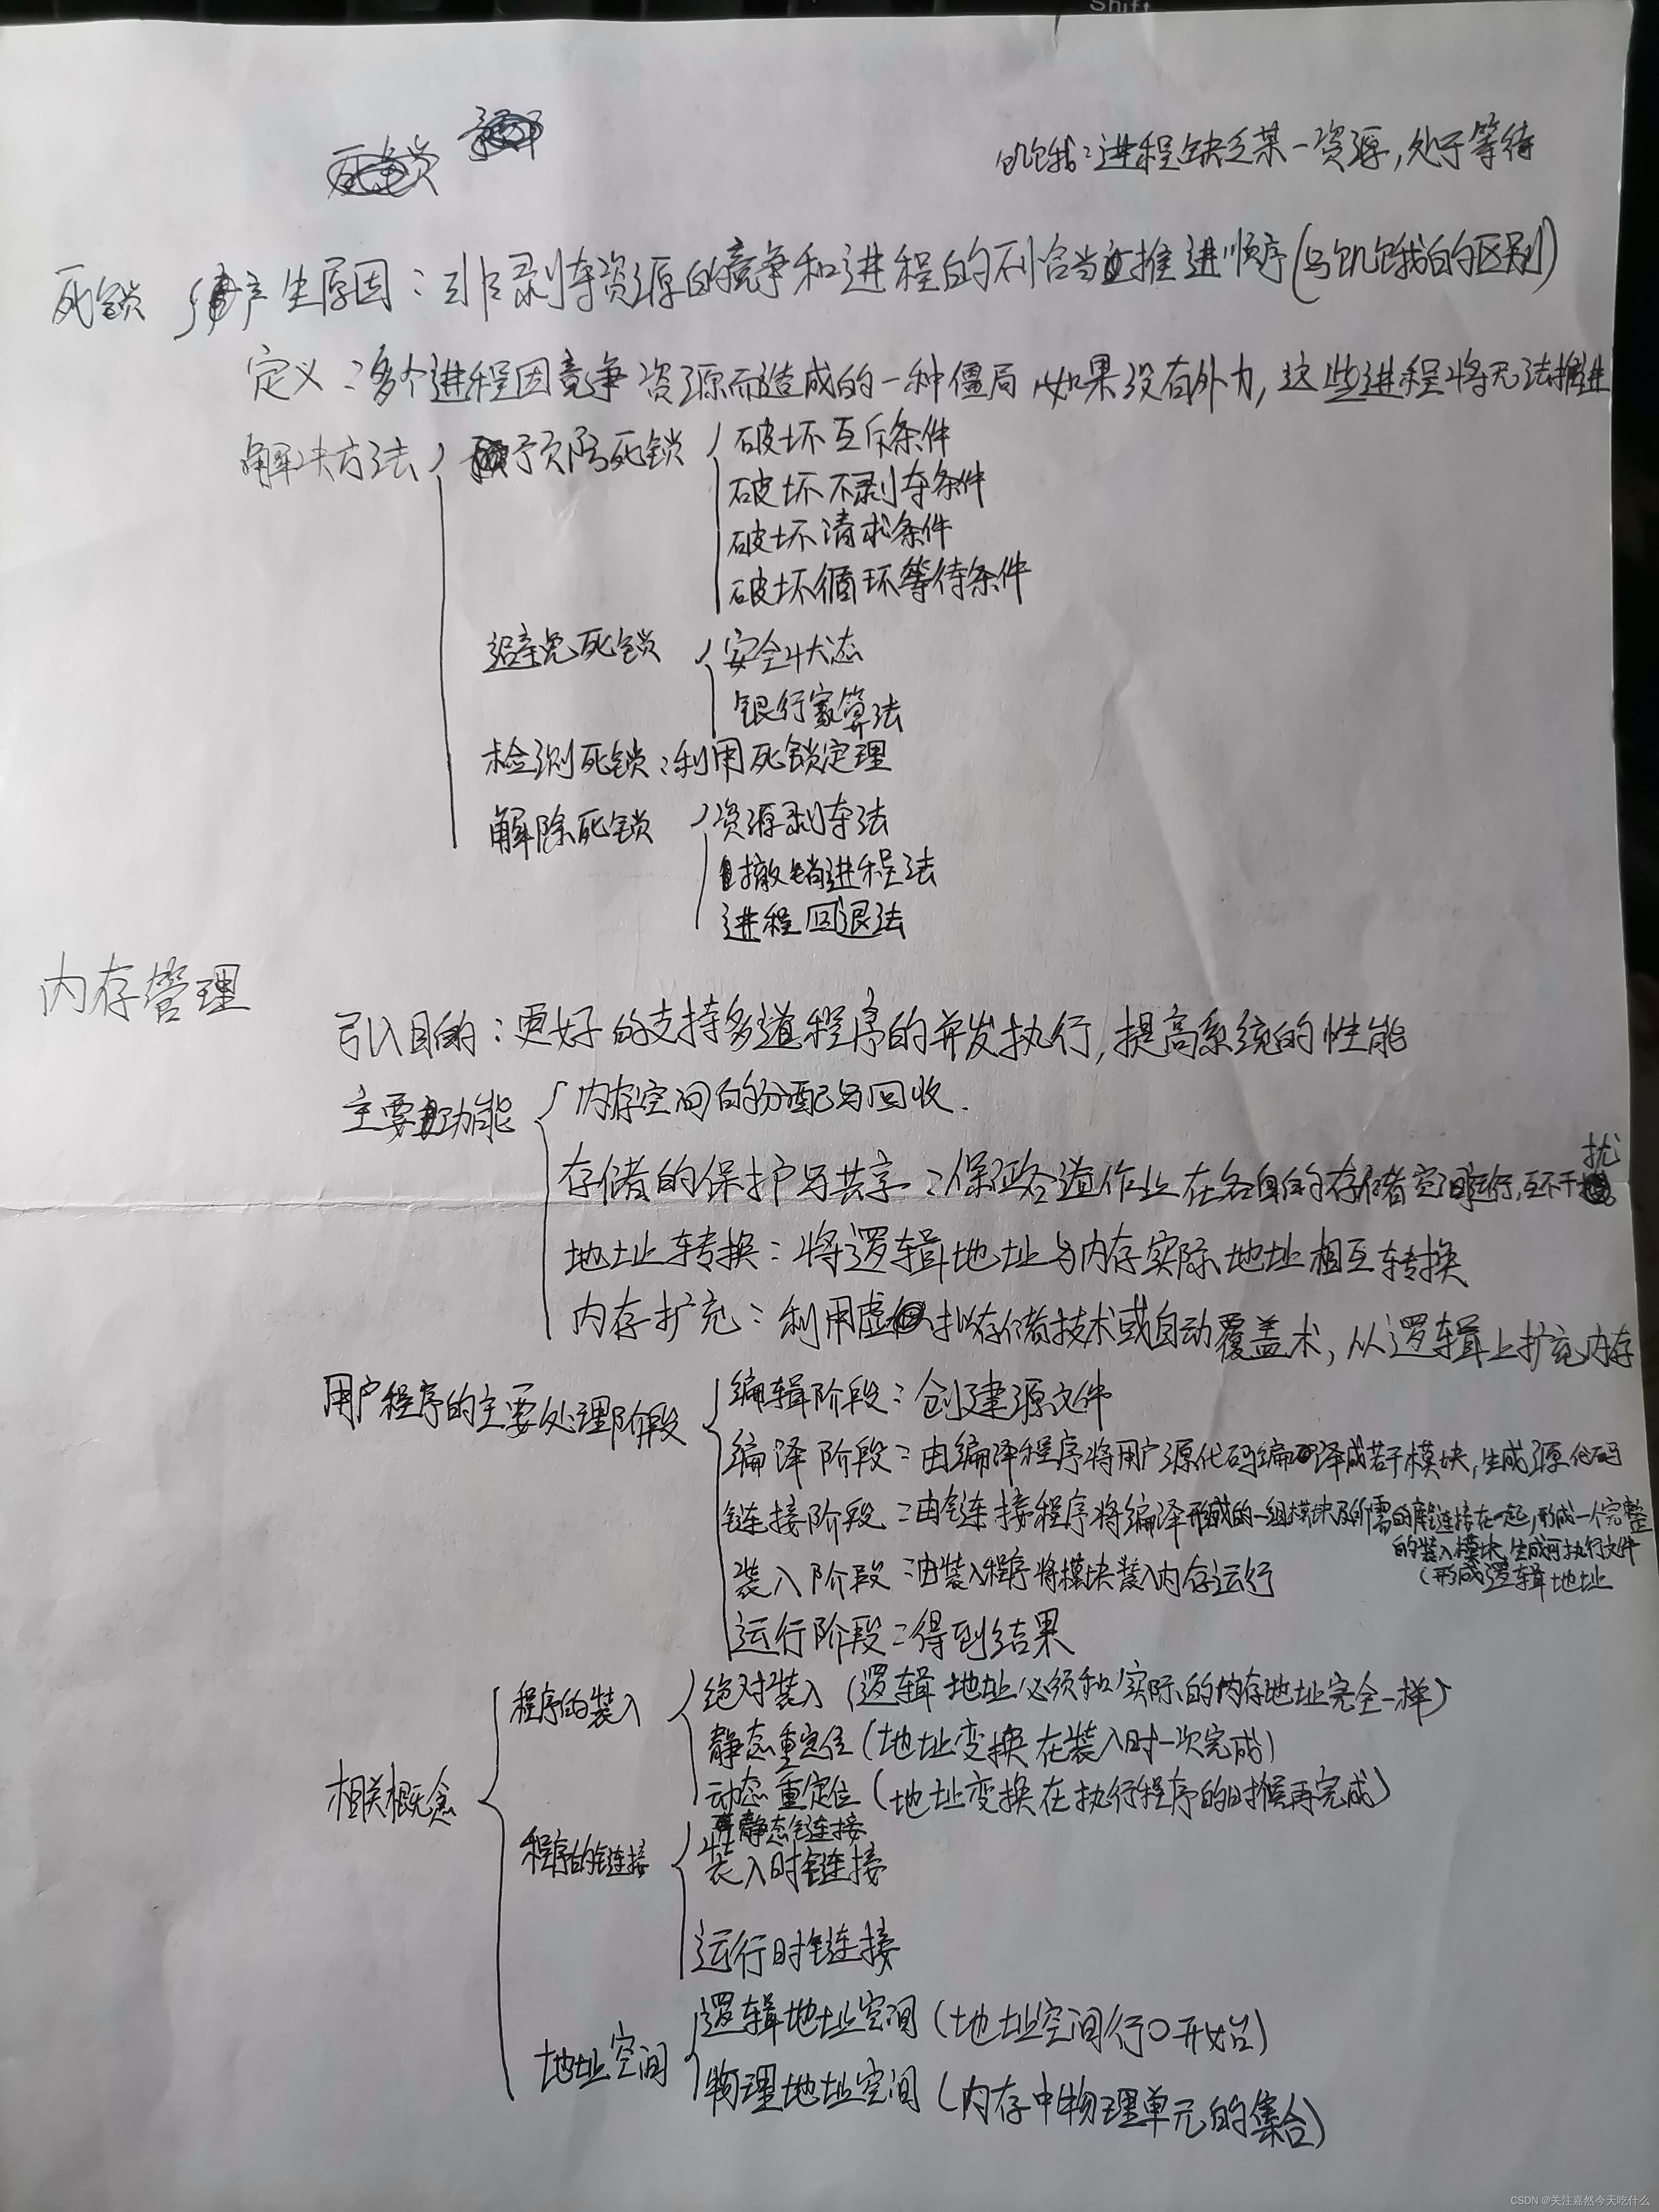 Shift
饥饿:进程缺乏某一资源,处于等待
死锁 产生原因:非剥夺资源的竞争和进程的不恰当推进顺序(与饥饿的区别)
定义:多个进程因竞争资源而造成的一种僵局,如果没有外力,这些进程将无法推进
解决方法 预防死锁 破坏互斥条件
破坏不剥夺条件
破坏请求条件
破坏循环等待条件
避免死锁 安全状态
银行家算法
检测死锁:利用死锁定理
解除死锁 资源剥夺法
撤销进程法
进程回退法
内存管理
引入目的:更好的支持多道程序的并发执行,提高系统的性能
主要功能 内存空间的分配与回收.
存储的保护与共享:保证各道作业在各自的存储空间运行,互不干扰
地址转换:将逻辑地址与内存实际地址相互转换
内存扩充:利用虚拟存储技术或自动覆盖术,从逻辑上扩充内存
用户程序的主要处理阶段 编辑阶段:创建源文件
编译阶段:由编译程序将用户源代码编译成若干模块,生成源代码
链接阶段:由链接程序将编译形成的一组模块及所需的库链接在一起,形成一个完整
的装入模块,生成可执行文件
(形成逻辑地址
装入阶段:由装入程序将模块装入内存运行
运行阶段:得到结果
相关概念 程序的装入 绝对装入(逻辑地址必须和实际的内存地址完全一样)
静态重定位(地址变换在装入时一次完成)
动态重定位(地址变换在执行程序的时候再完成)
程序的链接 静态链接
装入时链接
运行时链接
地址空间 逻辑地址空间(地址空间行0开始)
物理地址空间(内存中物理单元的集合)
CSDN @关注嘉然今天吃什么